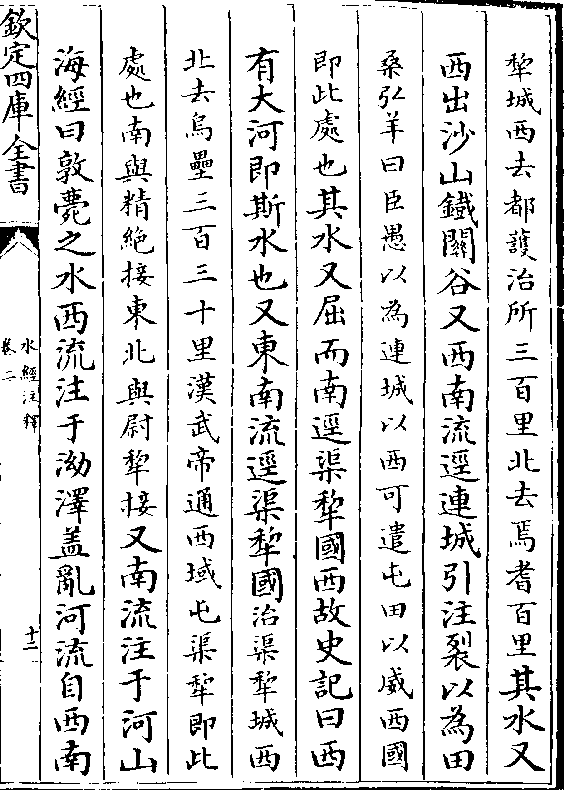 犂城西去都䕶治所三百里北去焉耆百里其水又
西出沙山鐡闗谷又西南流逕連城引注裂以為田
桑弘羊曰臣愚以為連城以西可遣屯田以威西國
即此處也其水又屈而南逕渠犂國西故史記曰西
有大河即斯水也又東南流逕渠犂國治渠犂城西
北去烏壘三百三十里漢武帝通西域屯渠犂即此
處也南與精絶接東北與尉犂接又南流注于河山
海經曰敦薨之水西流注于泑澤盖亂河流自西南
欽定四庫全書
水經注釋
卷二
十二